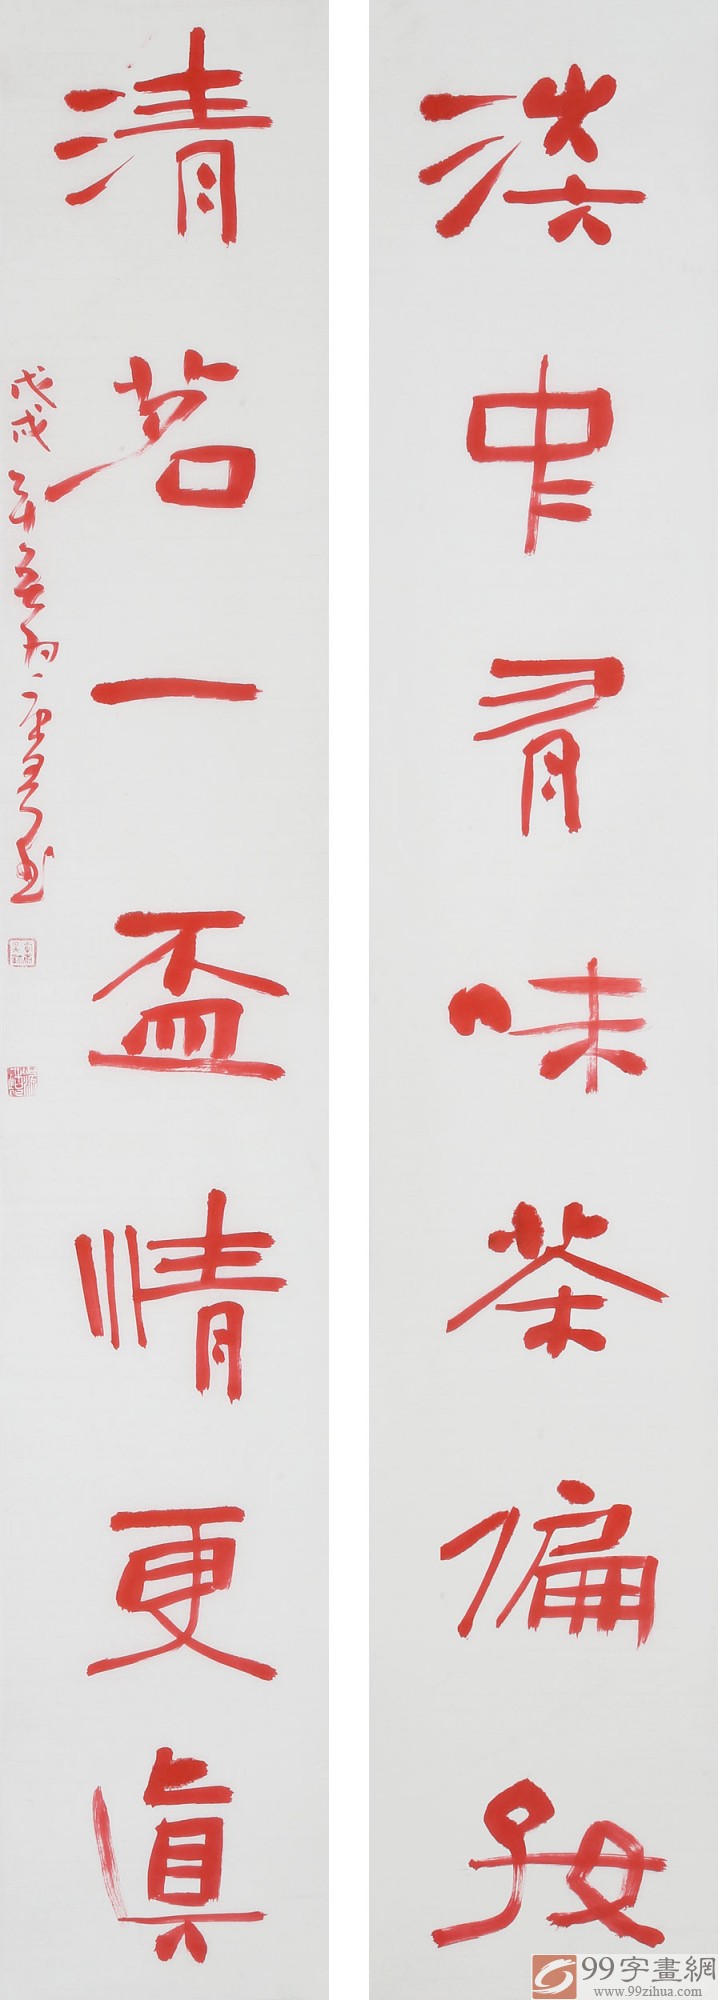 淡中有味茶偏好
清茗一盃情更真
戊戌
99字畫網
www.99zihua.com